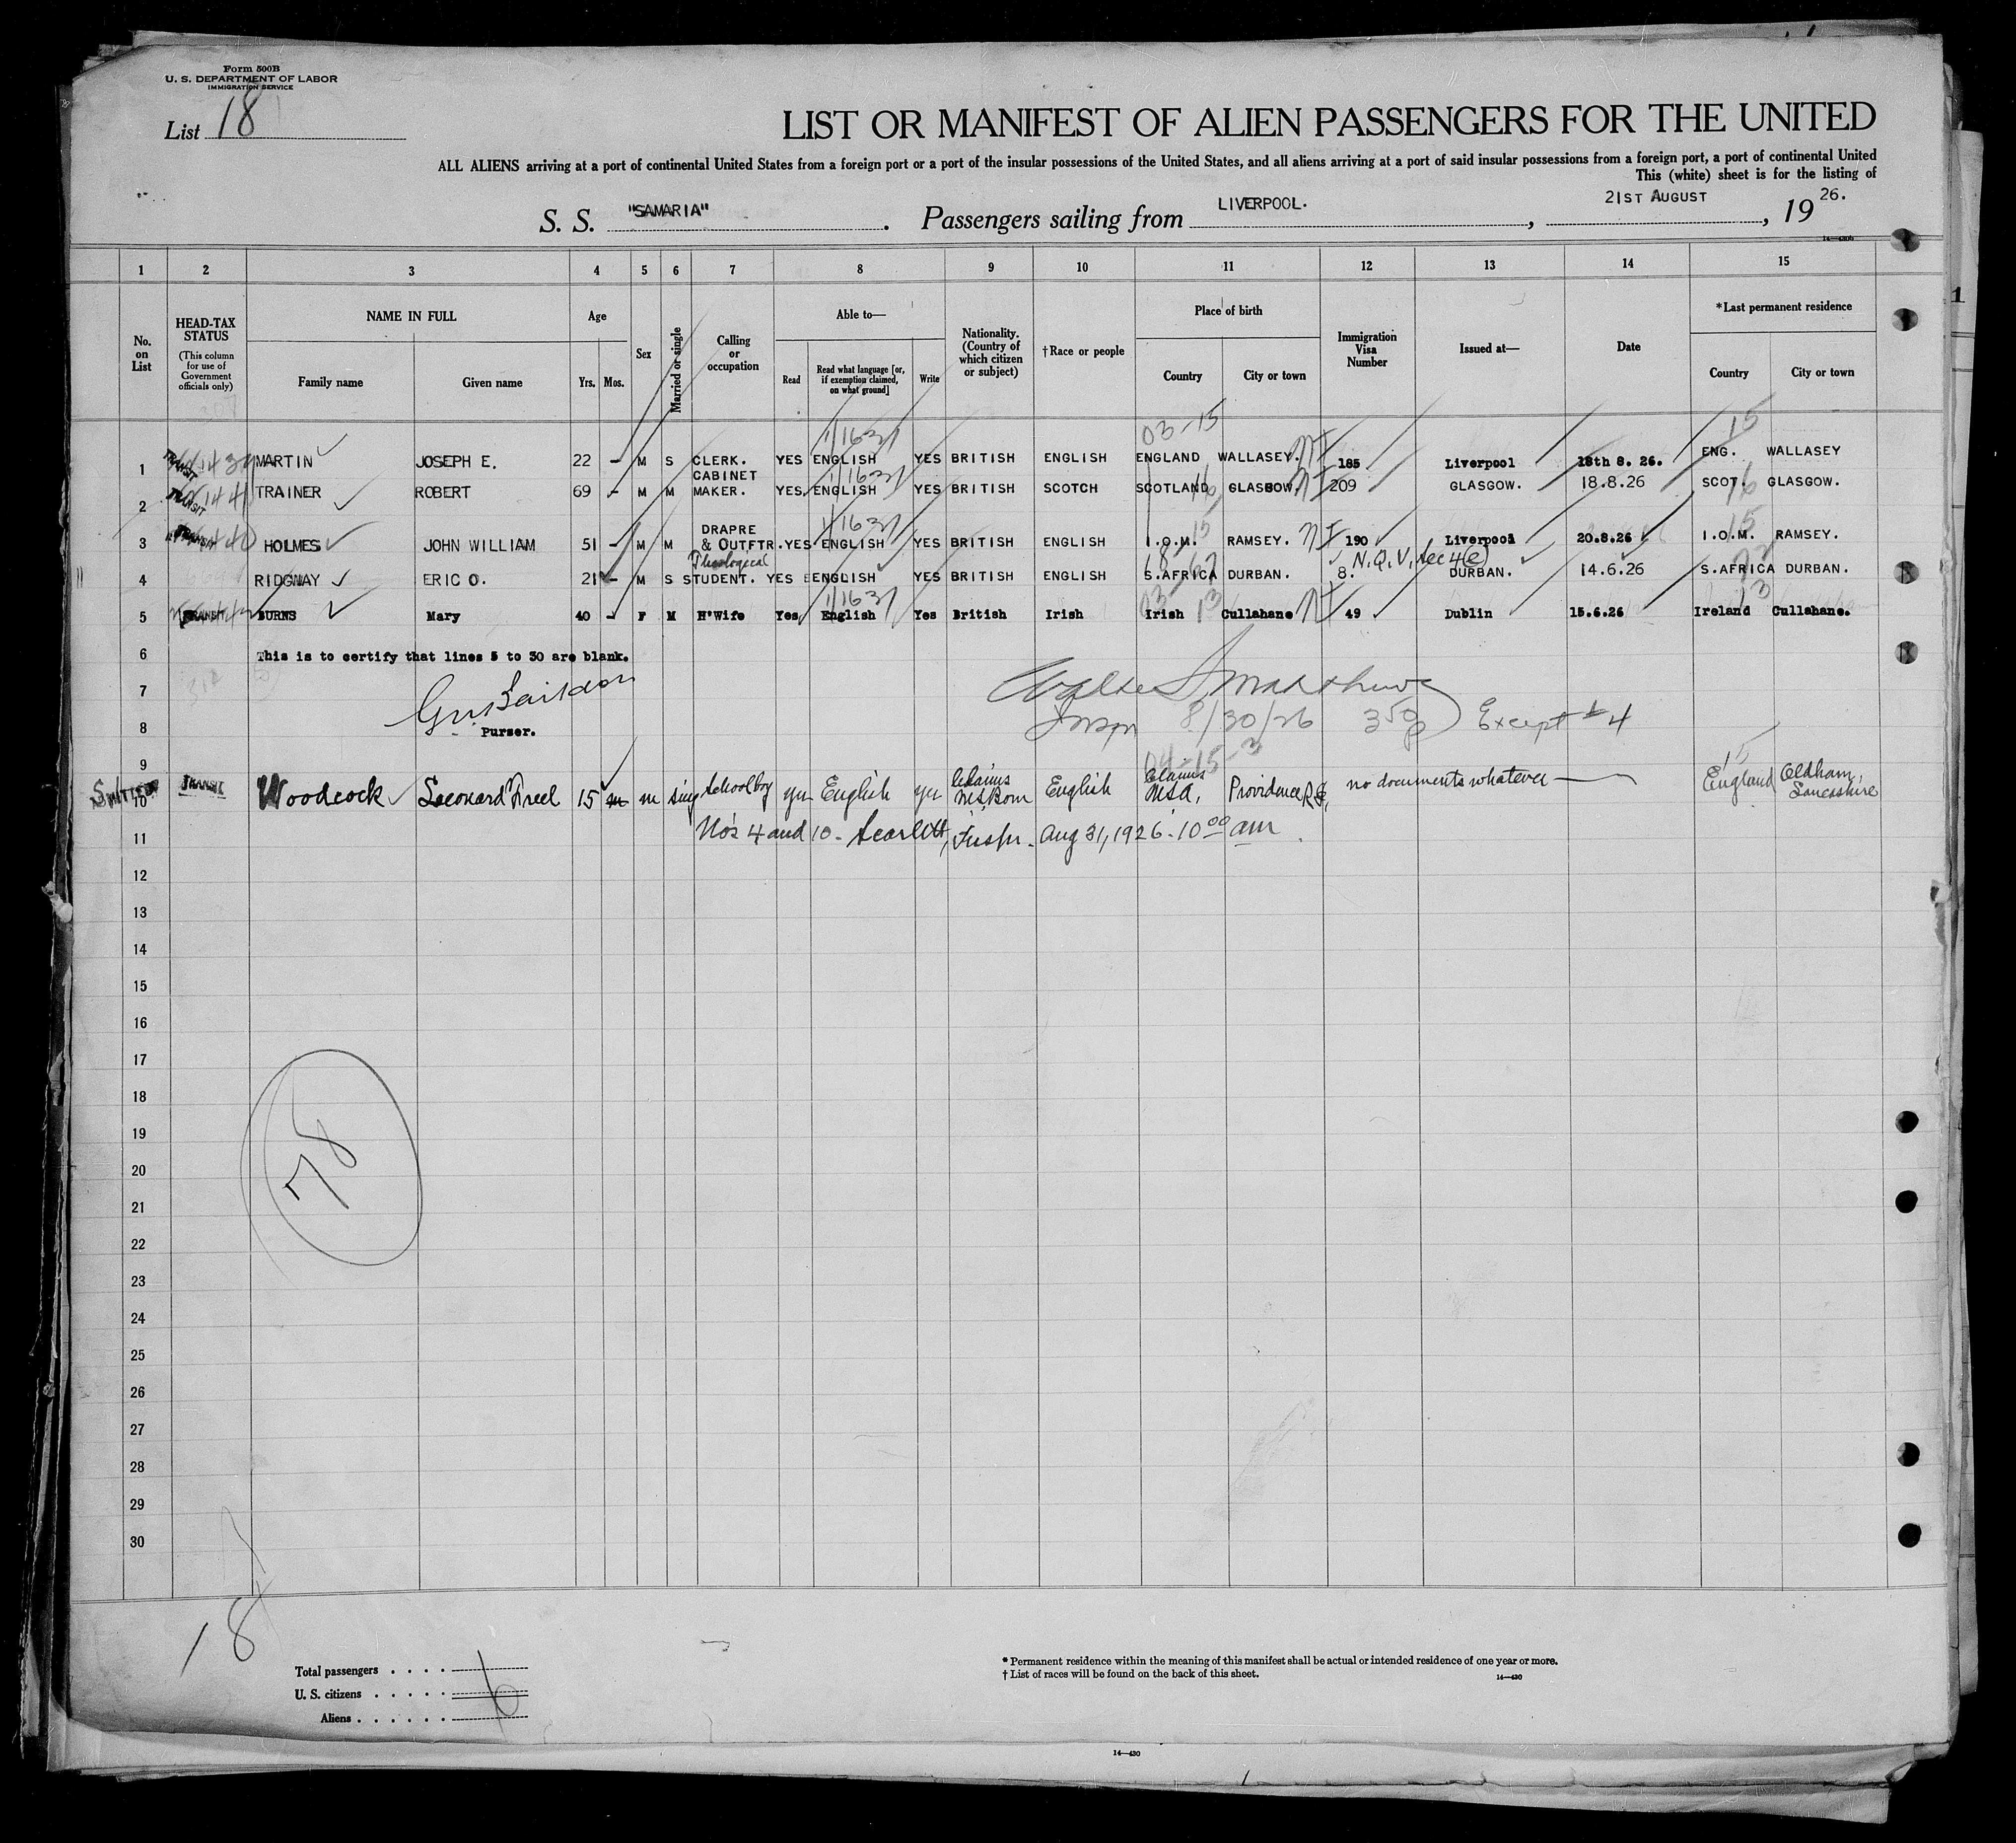 Form 500B
U. S. DEPARTMENT OF LABOR
IMMIGRATION SERVICE
List 18
LIST OR MANIFEST OF ALIEN PASSENGERS FOR THE UNITED
ALL ALIENS arriving at a port of continental United States from a foreign port or a port of the insular possessions of the United States, and all aliens arriving at a port of said insular possessions from a foreign port, a port of continental United
This (white) sheet is for the listing of
S. S. "SAMARIA". Passengers sailing from LIVERPOOL., 21ST AUGUST, 19 26.
14—430b
1 2 3 4 5 6 7 8 9 10 11 12 13 14 15
No. on List
HEAD-TAX STATUS (This column for use of Government officials only)
NAME IN FULL
Family name Given name
Age
Yrs. Mos.
Sex
Married or single
Calling or occupation
Able to—
Read Read what language [or, if exemption claimed, on what ground] Write
Nationality. (Country of which citizen or subject)
†Race or people
Place of birth
Country City or town
Immigration Visa Number
Issued at—
Date
*Last permanent residence
Country City or town
03-15 15
1/1637
1 TRANSIT MARTIN JOSEPH E. 22 - M S CLERK. YES ENGLISH YES BRITISH ENGLISH ENGLAND WALLASEY. 185 Liverpool 18th 8. 26. ENG. WALLASEY
1/1637
2 TRANSIT TRAINER ROBERT 69 - M M CABINET MAKER. YES. ENGLISH YES BRITISH SCOTCH SCOTLAND GLASGOW. 209 GLASGOW. 18.8.26 SCOT. GLASGOW.
16 16
1/1637
3 TRANSIT HOLMES JOHN WILLIAM 51 - M M DRAPRE & OUTFTR. YES ENGLISH YES BRITISH ENGLISH I.O.M. RAMSEY. 190 Liverpool 20.8.26 I.O.M. RAMSEY.
15 15
Theological N.Q.V. Sec 4(e)
4 RIDGWAY ERIC O. 21 - M S STUDENT. YES ENGLISH YES BRITISH ENGLISH S.AFRICA DURBAN. 8. DURBAN. 14.6.26 S.AFRICA DURBAN.
1/1637 03 13 13
5 TRANSIT BURNS Mary 40 - F M H'Wife Yes English Yes British Irish Irish Cullahane 49 Dublin 15.6.26 Ireland Cullahane.
6 This is to certify that lines 5 to 30 are blank.
7 Walter Matthews
8 Purser. Inspr 8/30/26 350p Except #4
9 04-15-3 15
10 TRANSIT Woodcock Leonard 15 m sing Schoolboy yes English yes Claims US Born English Claims USA, Providence R.I., no documents whatever England Oldham, Lancashire
11 No's 4 and 10 - Scarlett, Inspr. Aug 31, 1926 - 10 00 am
12
13
14
15
16
17
18
19
20
21
22
23
24
25
26
27
28
29
30
78
18
Total passengers
U. S. citizens
Aliens
* Permanent residence within the meaning of this manifest shall be actual or intended residence of one year or more.
† List of races will be found on the back of this sheet.
14—430
14—430